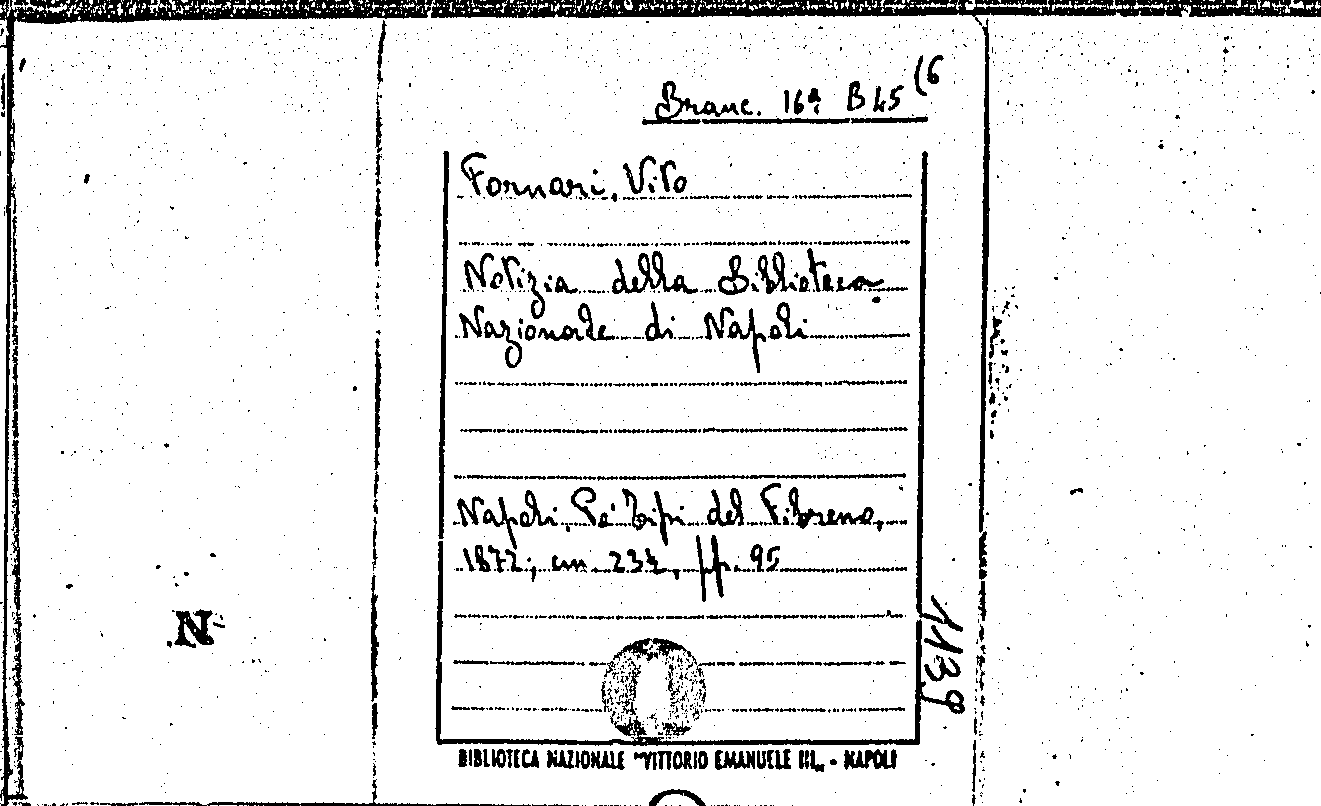 Branc. 16ª B 45 (6
Fornari, Vito
Notizia della Biblioteca
Nazionale di Napoli
Napoli, Pe' Tipi del Fibreno,
1872; cm 23½, pp. 95
1139
N
BIBLIOTECA NAZIONALE "VITTORIO EMANUELE III„ - NAPOLI